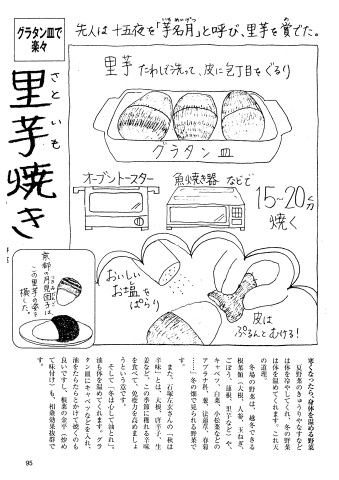 グラタン皿で
楽々
里芋焼き
さといも
先人は十五夜を「芋名月」と呼び、里芋を賞でた。
いもめいげつ
め
里芋 たわしで洗って、皮に包丁目をぐるり
グラタン皿
オーブントースター
魚焼き器 などで
15~20分
焼く
おいしい
お塩を
ぱらり
皮は
ぷるんとむける!
京都の月見団子は、
この里芋の姿を
模した。
寒くなったら、身体を温める野菜
夏野菜のきゅうりやなすなど
は体を冷やしてくれ、冬の野菜
は体を温めてくれます。これ天
の道理。
冬場の野菜は、越冬できる
根菜類(大根、人参、玉ねぎ、
ごぼう、蓮根、里芋など)や、
キャベツ、白菜、小松菜などの
アブラナ科、葱、法蓮草、春菊
……。冬の畑で見られる野菜
です。
また、石塚左玄さんの「秋は
辛味」とは、大根、唐辛子、生
姜など、この季節に穫れる辛味
を食べて、免疫力を高めましょ
うという意です。
そして「冬は心して油とれ」。
油も体を温めてくれます。グラ
タン皿にキャベツなどを入れ、
油をたらたらとかけて焼くのも
良いですし、根菜の金平(炒め
て味付け)も、相乗効果抜群で
す。
95